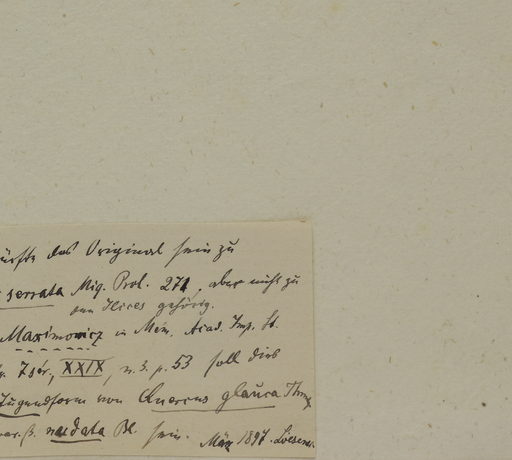 dürfte das Original sein zu
serrata Miq. Prol. 271, aber nicht zu
den Ilices gehörig.
Maximowicz in Mém. Acad. Imp. St.
7 sér, XXIX, n. 3. p. 53 soll dies
Jugendform von Quercus glauca Thnb
var. β. nudata Bl. sein. März 1897. Loesener.